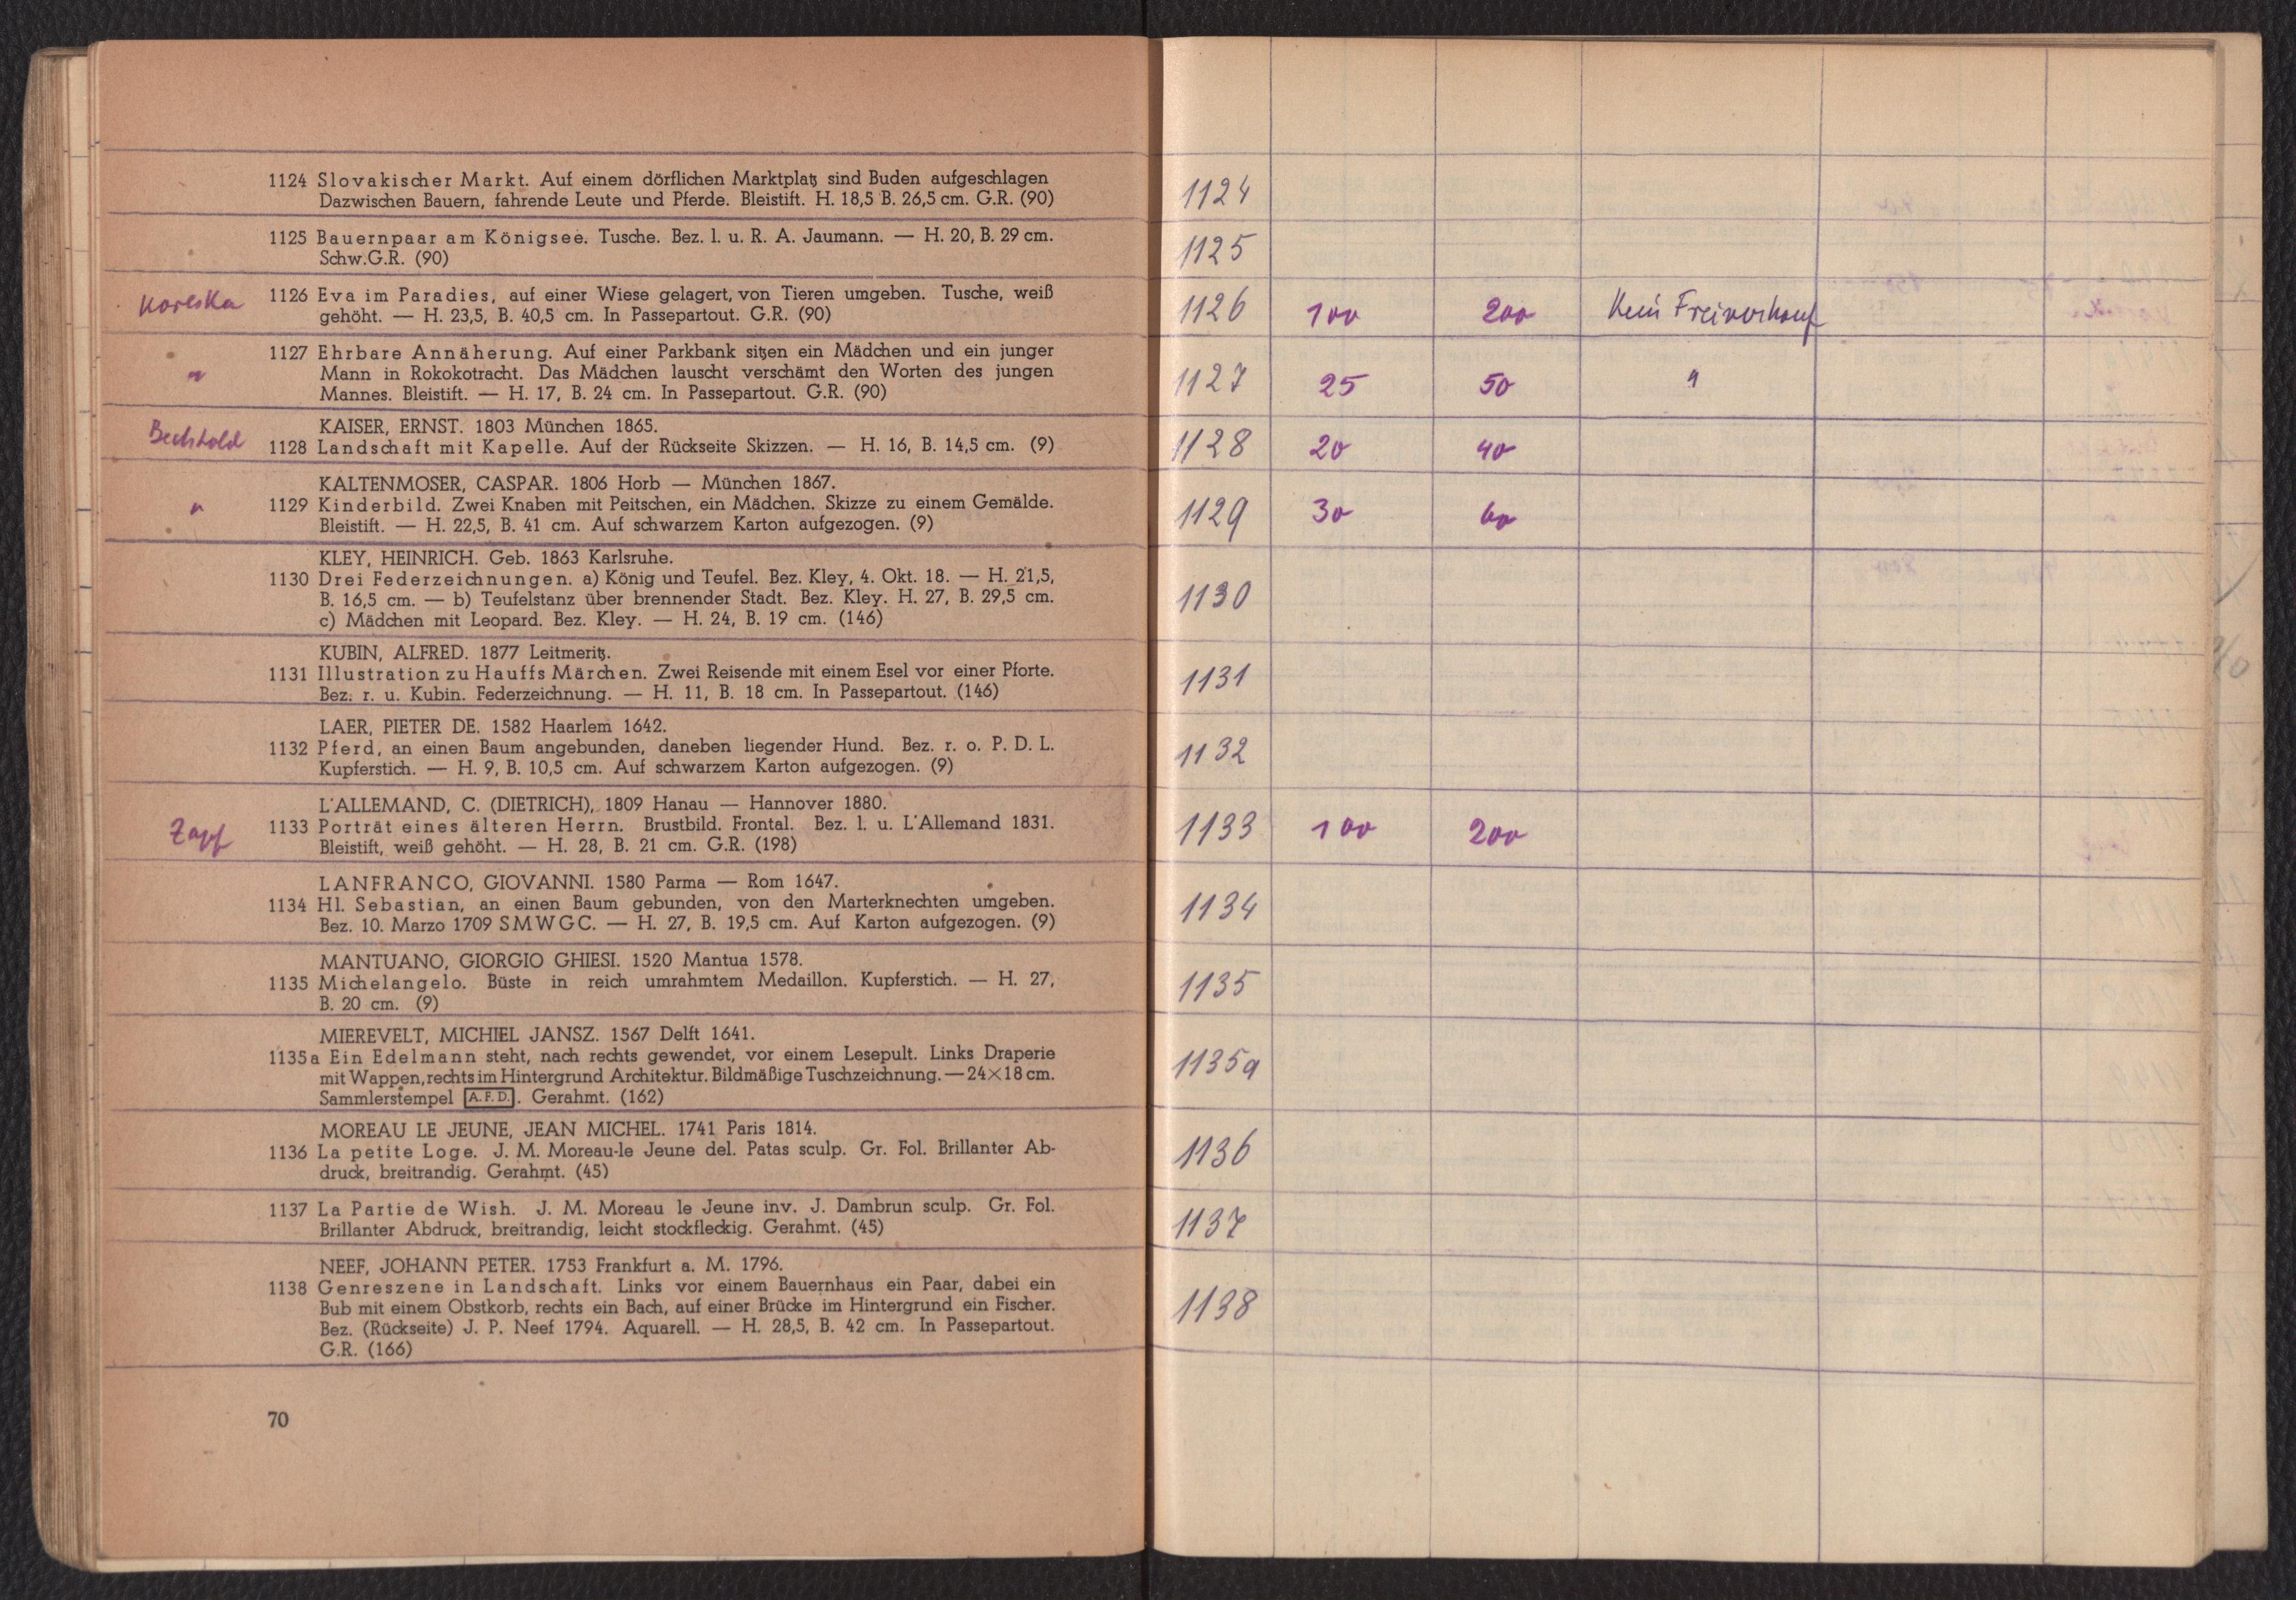 1124 Slovakischer Markt. Auf einem dörflichen Marktplatz sind Buden aufgeschlagen
Dazwischen Bauern, fahrende Leute und Pferde. Bleistift. H. 18,5 B. 26,5 cm. G.R. (90)
1125 Bauernpaar am Königsee. Tusche. Bez. l. u. R. A. Jaumann. — H. 20, B. 29 cm.
Schw.G.R. (90)
Koreska
1126 Eva im Paradies, auf einer Wiese gelagert, von Tieren umgeben. Tusche, weiß
gehöht. — H. 23,5, B. 40,5 cm. In Passepartout. G.R. (90)
"
1127 Ehrbare Annäherung. Auf einer Parkbank sitzen ein Mädchen und ein junger
Mann in Rokokotracht. Das Mädchen lauscht verschämt den Worten des jungen
Mannes. Bleistift. — H. 17, B. 24 cm. In Passepartout. G.R. (90)
Bechtold
KAISER, ERNST. 1803 München 1865.
1128 Landschaft mit Kapelle. Auf der Rückseite Skizzen. — H. 16, B. 14,5 cm. (9)
KALTENMOSER, CASPAR. 1806 Horb — München 1867.
"
1129 Kinderbild. Zwei Knaben mit Peitschen, ein Mädchen. Skizze zu einem Gemälde.
Bleistift. — H. 22,5, B. 41 cm. Auf schwarzem Karton aufgezogen. (9)
KLEY, HEINRICH. Geb. 1863 Karlsruhe.
1130 Drei Federzeichnungen. a) König und Teufel. Bez. Kley, 4. Okt. 18. — H. 21,5,
B. 16,5 cm. — b) Teufelstanz über brennender Stadt. Bez. Kley. H. 27, B. 29,5 cm.
c) Mädchen mit Leopard. Bez. Kley. — H. 24, B. 19 cm. (146)
KUBIN, ALFRED. 1877 Leitmeritz.
1131 Illustration zu Hauffs Märchen. Zwei Reisende mit einem Esel vor einer Pforte.
Bez. r. u. Kubin. Federzeichnung. — H. 11, B. 18 cm. In Passepartout. (146)
LAER, PIETER DE. 1582 Haarlem 1642.
1132 Pferd, an einen Baum angebunden, daneben liegender Hund. Bez. r. o. P. D. L.
Kupferstich. — H. 9, B. 10,5 cm. Auf schwarzem Karton aufgezogen. (9)
L'ALLEMAND, C. (DIETRICH), 1809 Hanau — Hannover 1880.
Zapf
1133 Porträt eines älteren Herrn. Brustbild. Frontal. Bez. l. u. L'Allemand 1831.
Bleistift, weiß gehöht. — H. 28, B. 21 cm. G.R. (198)
LANFRANCO, GIOVANNI. 1580 Parma — Rom 1647.
1134 Hl. Sebastian, an einen Baum gebunden, von den Marterknechten umgeben.
Bez. 10. Marzo 1709 SMWGC. — H. 27, B. 19,5 cm. Auf Karton aufgezogen. (9)
MANTUANO, GIORGIO GHIESI. 1520 Mantua 1578.
1135 Michelangelo. Büste in reich umrahmtem Medaillon. Kupferstich. — H. 27,
B. 20 cm. (9)
MIEREVELT, MICHIEL JANSZ. 1567 Delft 1641.
1135a Ein Edelmann steht, nach rechts gewendet, vor einem Lesepult. Links Draperie
mit Wappen, rechts im Hintergrund Architektur. Bildmäßige Tuschzeichnung. — 24×18 cm.
Sammlerstempel A. F. D. . Gerahmt. (162)
MOREAU LE JEUNE, JEAN MICHEL. 1741 Paris 1814.
1136 La petite Loge. J. M. Moreau-le Jeune del. Patas sculp. Gr. Fol. Brillanter Ab-
druck, breitrandig. Gerahmt. (45)
1137 La Partie de Wish. J. M. Moreau le Jeune inv. J. Dambrun sculp. Gr. Fol.
Brillanter Abdruck, breitrandig, leicht stockfleckig. Gerahmt. (45)
NEEF, JOHANN PETER. 1753 Frankfurt a. M. 1796.
1138 Genreszene in Landschaft. Links vor einem Bauernhaus ein Paar, dabei ein
Bub mit einem Obstkorb, rechts ein Bach, auf einer Brücke im Hintergrund ein Fischer.
Bez. (Rückseite) J. P. Neef 1794. Aquarell. — H. 28,5, B. 42 cm. In Passepartout.
G.R. (166)
70
1124
1125
1126 100 200 Kein Freiverkauf
1127 25 50 "
1128 20 40
1129 30 60
1130
1131
1132
1133 100 200
1134
1135
1135a
1136
1137
1138